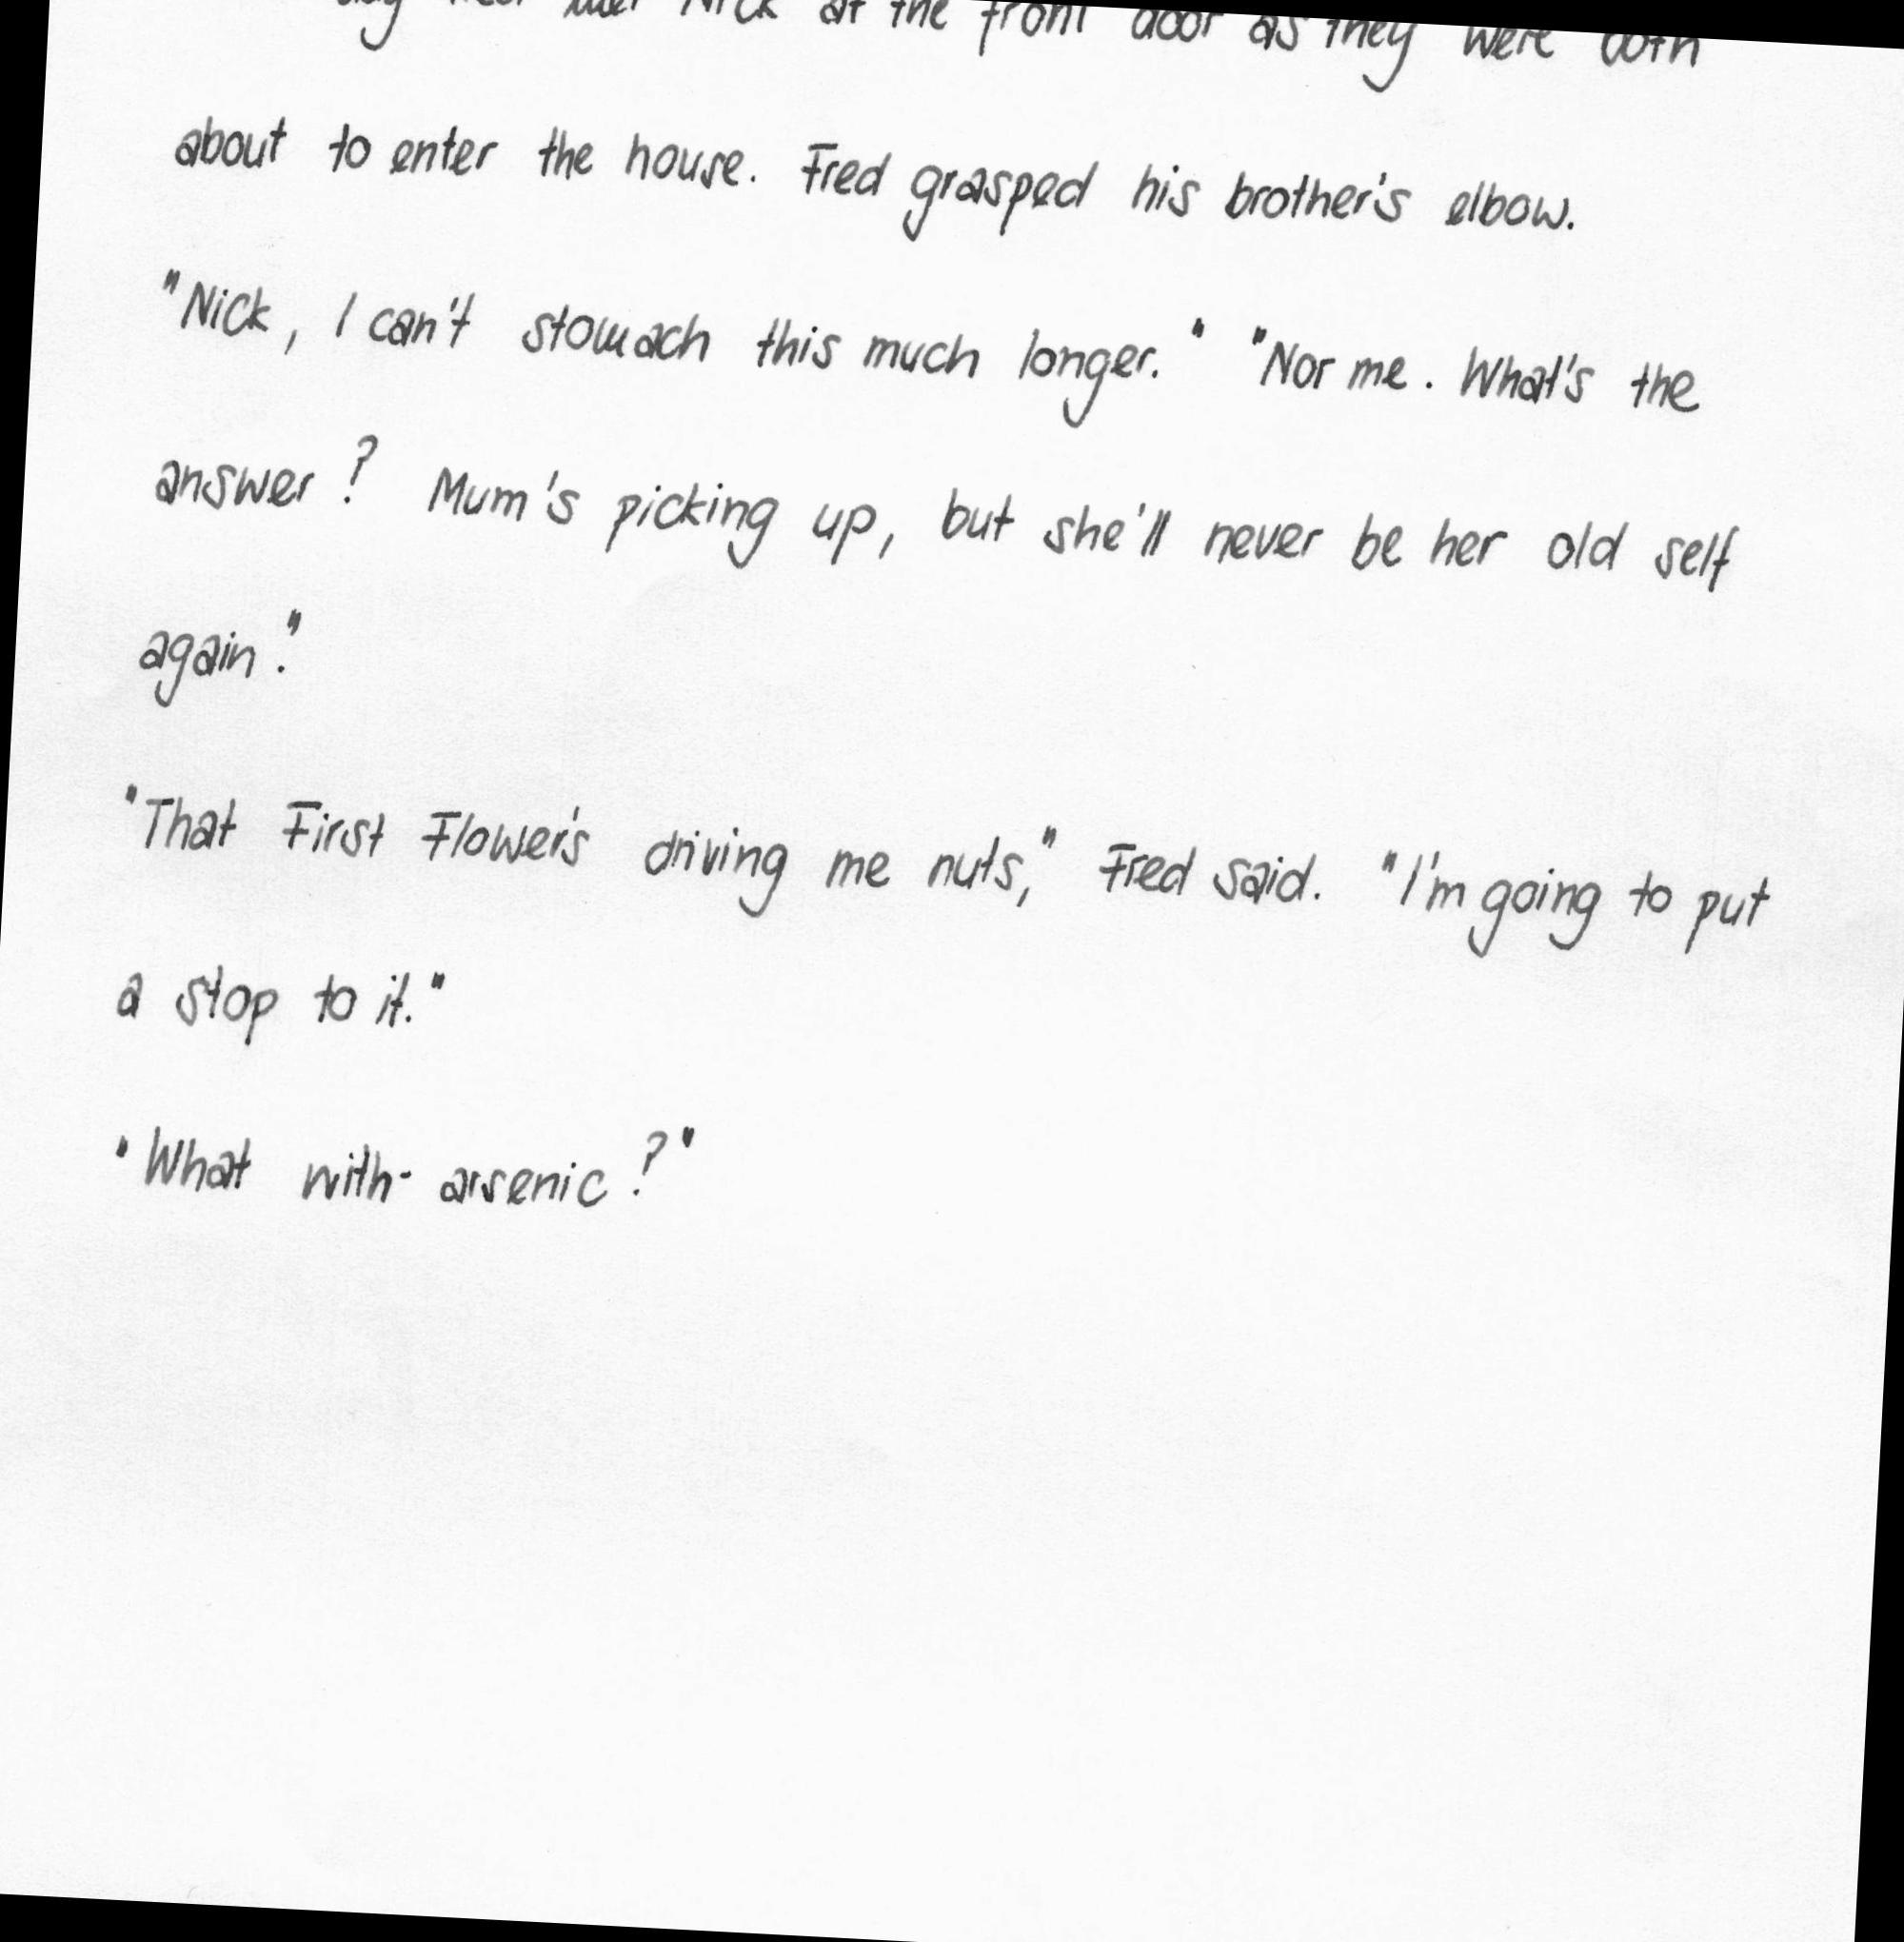 Nick at the front door as they were both
about to enter the house. Fred grasped his brother's elbow.
"Nick, I can't stomach this much longer." "Nor me. What's the
answer? Mum's picking up, but she'll never be her old self
again."
"That First Flower's driving me nuts," Fred said. "I'm going to put
a stop to it."
"What with - arsenic?"